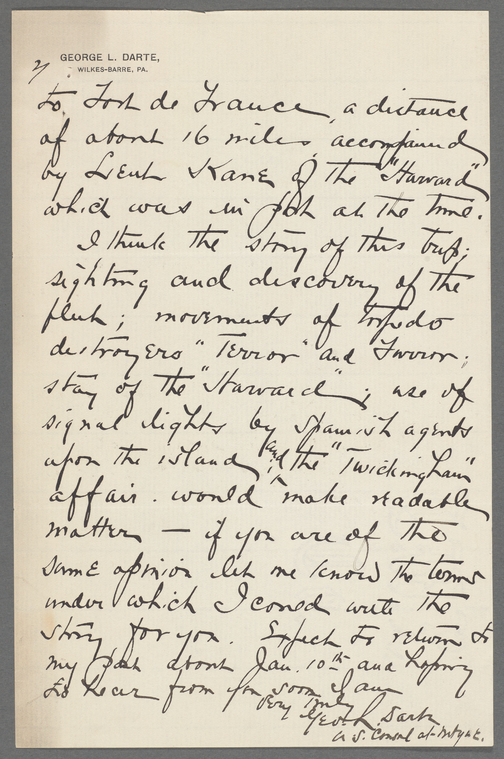 GEORGE L. DARTE,
WILKES-BARRE, PA.
2/
to Fort de France, a distance
of about 16 miles, accompanied
by Lieut Kane of the "Harvard"
which was in port at the time.
I think the story of this trip;
sighting and discovery of the
fleet; movements of torpedo
destroyers "Terror" and Furror;
stay of the "Harvard"; use of
signal lights by Spanish agents
upon the island, and the "Twickingham"
affair. would make readable
matter — if you are of the
same opinion let me know the terms
under which I could write the
story for you. Expect to return to
my post about Jan. 10th and hoping
to hear from you soon I am
Very truly
Geo. L. Darte
U.S. Consul at Mtque.